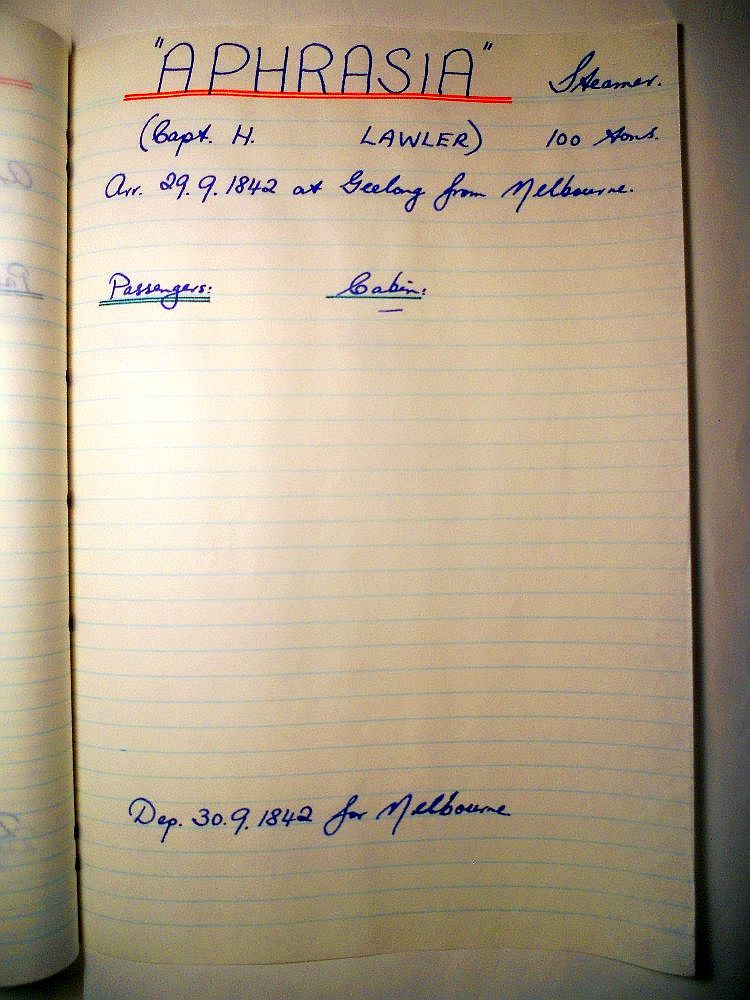 "APHRASIA" Steamer.
(Capt. H. LAWLER) 100 tons.
Arr. 29.9.1842 at Geelong from Melbourne.
Passengers: Cabin:
—
Dep. 30.9.1842 for Melbourne